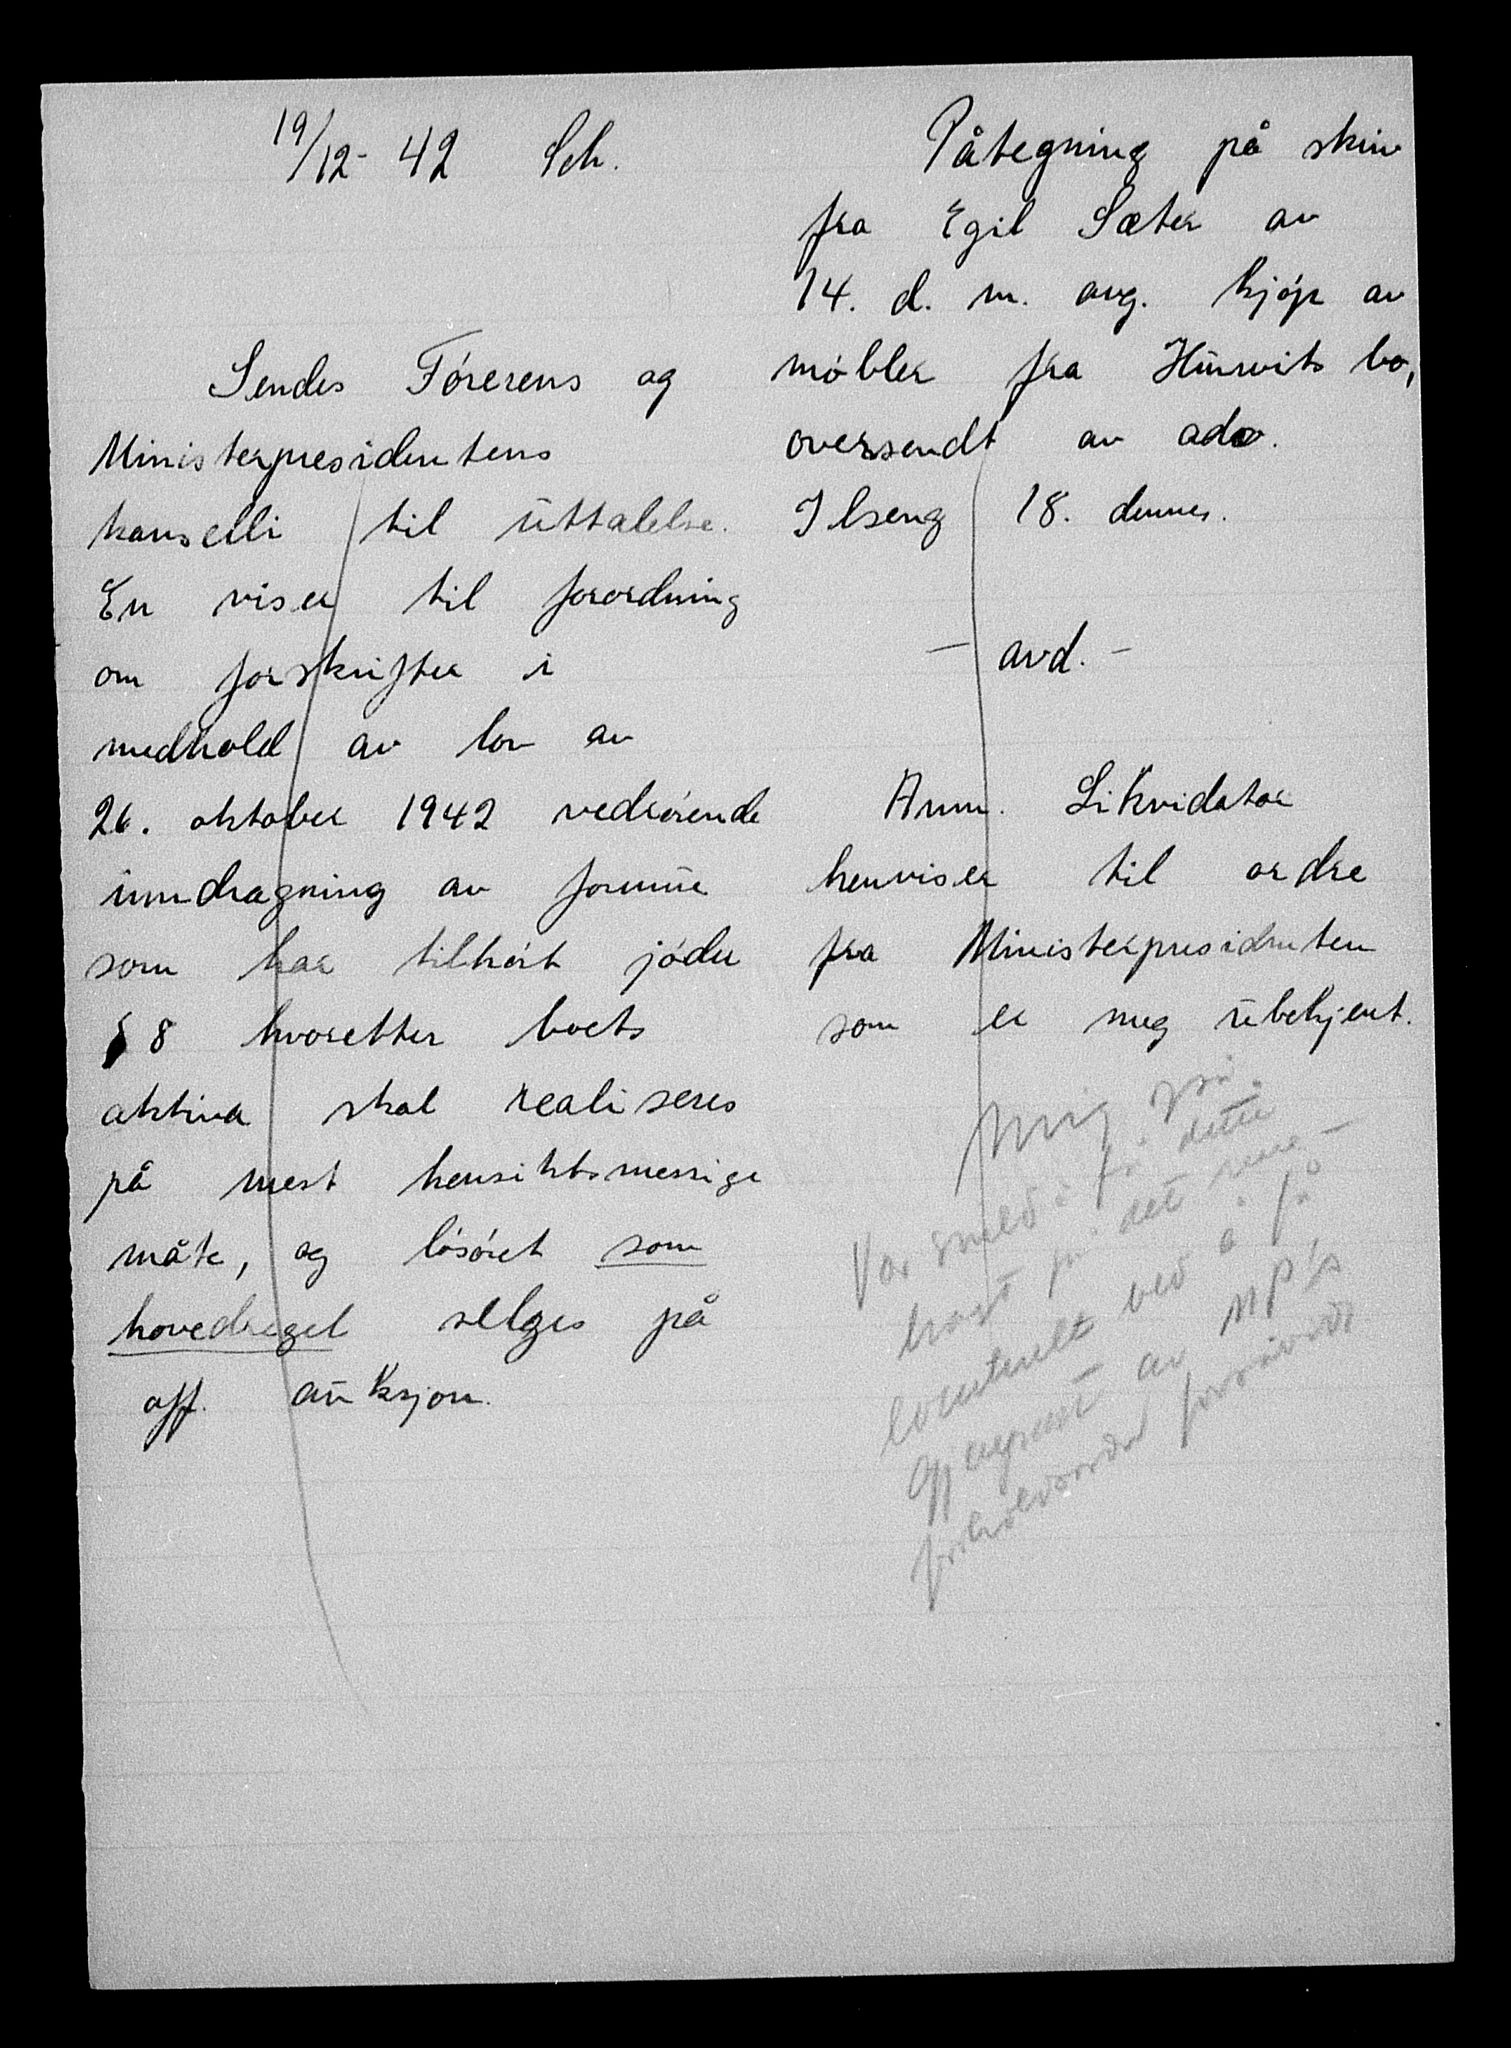 19/12- 42 Sch.
Sendes Førerens og
Ministerpresidentens
kanselli til uttalelse.
En viser til forordning
om forskrifter i
medhold av lov av
26. oktober 1942 vedrørende
inndragning av formue
som har tilhørt jøder
§ 8 hvoretter boets
aktiva skal realiseres
på mest hensiktsmessige
måte, og løsøret som
hovedregel selges på
off. auksjon.
Påtegning på skriv
fra Egil Sæter av
14. d. m. ang. kjøp av
møbler fra Hurwits bo,
oversendt av adv.
Ilseng 18. dennes.
- avd. -
Anm. Likvidator
henviser til ordre
fra Ministerpresidenten
som er meg ubekjent.
Vær snild å få dette
bragt på det rene -
eventuelt ved å få
gjenpart av MP's
forholdsordre forsåvidt